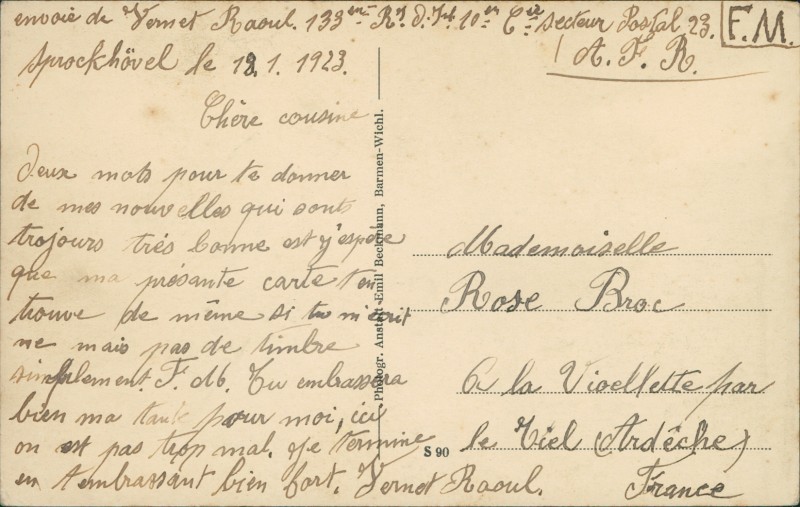 envoie de Vernet Raoul. 133em Rt d. Inf. 10em Cie secteur Postal 23.
F. M.
A. F. R.
Sprockhövel le 18. 1. 1923.
Chère cousine
Deux mots pour te donner
de mes nouvelles qui sont
trojours très bonne est j'espère
que ma présante carte t'en
trouve de même si tu m'écrit
ne mais pas de timbre
simplement. F. M. Tu embrassera
bien ma tante pour moi, ici
on est pas trop mal. Je termine
en t'embrassant bien fort. Vernet Raoul.
Photogr. Anstalt Emil Beckmann, Barmen-Wichl.
S 90
Mademoiselle
Rose Broc
à la Vioellette par
le Tiel (Ardêche)
France